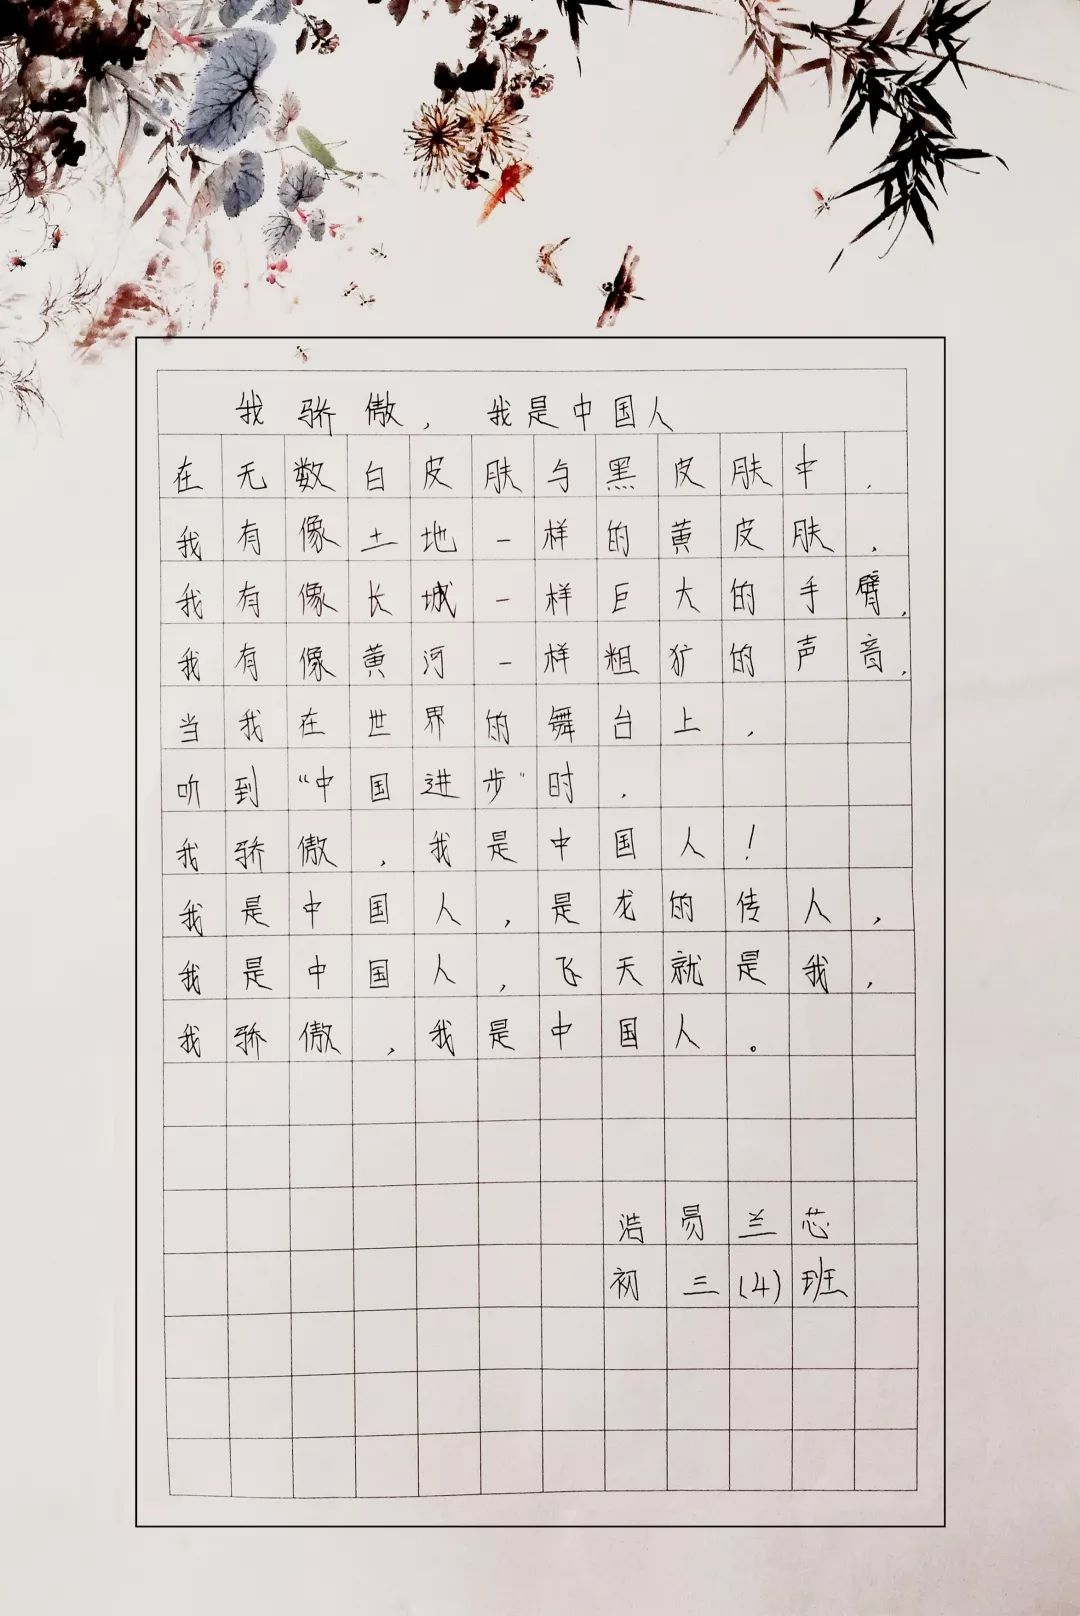 我骄傲，我是中国人
在无数白皮肤与黑皮肤中，
我有像土地一样的黄皮肤，
我有像长城一样巨大的手臂，
我有像黄河一样粗犷的声音，
当我在世界的舞台上，
听到“中国进步”时，
我骄傲，我是中国人！
我是中国人，是龙的传人，
我是中国人，飞天就是我，
我骄傲，我是中国人。
浩易兰芯
初三(4)班